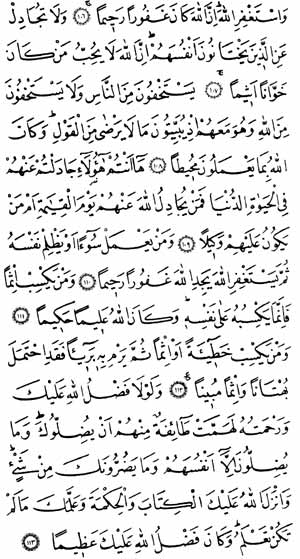 وَاسْتَغْفِرِ اللّٰهَ ۗ اِنَّ اللّٰهَ كَانَ غَفُوْرًا رَّحِيْمًا ۚ ﴿۱۰۶﴾ وَلَا تُجَادِلْ
عَنِ الَّذِيْنَ يَخْتَانُوْنَ اَنْفُسَهُمْ ۗ اِنَّ اللّٰهَ لَا يُحِبُّ مَنْ كَانَ
خَوَّانًا اَثِيْمًا ۙ ﴿۱۰۷﴾ يَسْتَخْفُوْنَ مِنَ النَّاسِ وَلَا يَسْتَخْفُوْنَ
مِنَ اللّٰهِ وَهُوَ مَعَهُمْ اِذْ يُبَيِّتُوْنَ مَا لَا يَرْضٰى مِنَ الْقَوْلِ ۗ وَكَانَ
اللّٰهُ بِمَا يَعْمَلُوْنَ مُحِيْطًا ﴿۱۰۸﴾ هٰٓاَنْتُمْ هٰٓؤُلَاۤءِ جَادَلْتُمْ عَنْهُمْ
فِى الْحَيٰوةِ الدُّنْيَا فَمَنْ يُّجَادِلُ اللّٰهَ عَنْهُمْ يَوْمَ الْقِيٰمَةِ اَمْ مَّنْ
يَّكُوْنُ عَلَيْهِمْ وَكِيْلًا ﴿۱۰۹﴾ وَمَنْ يَّعْمَلْ سُوْۤءًا اَوْ يَظْلِمْ نَفْسَهٗ
ثُمَّ يَسْتَغْفِرِ اللّٰهَ يَجِدِ اللّٰهَ غَفُوْرًا رَّحِيْمًا ﴿۱۱۰﴾ وَمَنْ يَّكْسِبْ اِثْمًا
فَاِنَّمَا يَكْسِبُهٗ عَلٰى نَفْسِهٖ ۗ وَكَانَ اللّٰهُ عَلِيْمًا حَكِيْمًا ﴿۱۱۱﴾
وَمَنْ يَّكْسِبْ خَطِيْۤـَٔةً اَوْ اِثْمًا ثُمَّ يَرْمِ بِهٖ بَرِيْۤـًٔا فَقَدِ احْتَمَلَ
بُهْتَانًا وَّاِثْمًا مُّبِيْنًا ﴿۱۱۲﴾ وَلَوْلَا فَضْلُ اللّٰهِ عَلَيْكَ
وَرَحْمَتُهٗ لَهَمَّتْ طَّاۤىِٕفَةٌ مِّنْهُمْ اَنْ يُّضِلُّوْكَ ۗ وَمَا
يُضِلُّوْنَ اِلَّاۤ اَنْفُسَهُمْ وَمَا يَضُرُّوْنَكَ مِنْ شَيْءٍ ۗ
وَاَنْزَلَ اللّٰهُ عَلَيْكَ الْكِتَابَ وَالْحِكْمَةَ وَعَلَّمَكَ مَا لَمْ
تَكُنْ تَعْلَمُ ۗ وَكَانَ فَضْلُ اللّٰهِ عَلَيْكَ عَظِيْمًا ﴿۱۱۳﴾